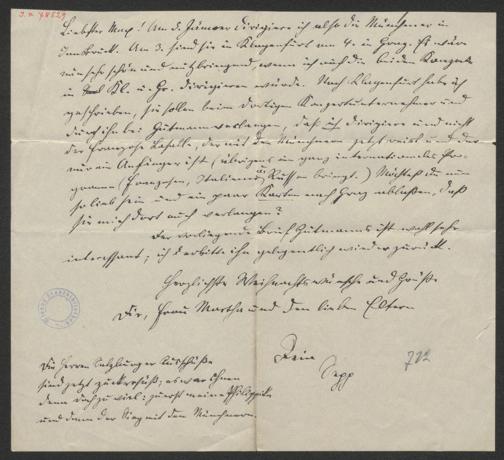 J.N. 48529
Liebster Max! Am 2. Jänner dirigiere ich also die Münchener in
Innsbruck. Am 3. sind sie in Klagenfurt am 4. in Graz. Es wäre
nun sehr schön und nutzbringend wenn ich auch die beiden Konzerte
in Kl. u. Gr. dirigieren würde. Nach Klagenfurt habe ich
geschrieben, sie sollen beim dortigen Konzertunternehmer und
durch ihn bei Gutmann verlangen, daß ich dirigiere und nicht
der Franzose Lasalle, der mit den Münchenern jetzt reist und der
nur ein Anfänger ist (übrigens ein ganz internationales Pro-
gramm (Franzosen, Italiener u. Russen bringt.) Möchtest du nun
so lieb sein und ein paar Karten nach Graz ablassen, daß
sie mich dort auch verlangen?
Der vorliegende Brief Gutmanns ist wohl sehr
interessant; ich erbitte ihn gelegentlich wieder zurück.
Herzlichste Weihnachtswünsche und Grüße
Dir, Frau Martha und den lieben Eltern
Dein
Sepp
722
Die Herren Salzburger Ausschüße
sind jetzt zuckersüß; es war ihnen
denn doch zu viel: zuerst meine Philippika
und dann der Sieg mit den Münchnern.